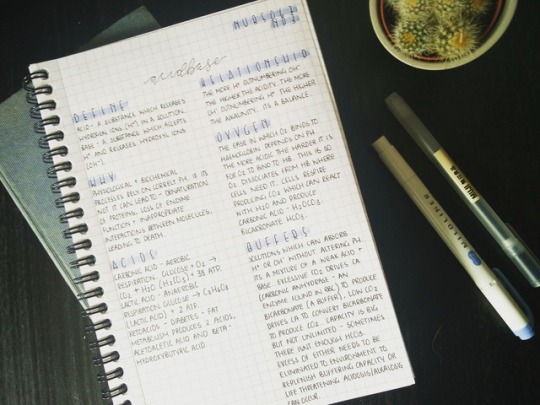 acidbase
DEFINE
ACID - A SUBSTANCE WHICH RELEASES
HYDROGEN IONS (H⁺) IN A SOLUTION.
BASE - A SUBSTANCE WHICH ACCEPTS
H⁺ AND RELEASES HYDROXYL IONS
(OH⁻).
WHY
PHYSIOLOGICAL + BIOCHEMICAL
PROCESSES RELY ON CORRECT PH. IS ITS
NOT IT CAN LEAD TO - DENATURATION
OF PROTEINS, LOSS OF ENZYME
FUNCTION + INAPPROPRIATE
INTERACTIONS BETWEEN MOLECULES,
LEADING TO DEATH.
ACIDS
CARBONIC ACID - AEROBIC
RESPIRATION: GLUCOSE + O₂ →
CO₂ + H₂O (H₂CO₃) + 38 ATP.
LACTIC ACID - ANAEROBIC
RESPIRATION: GLUCOSE → C₃H₆O₃
(LACTIC ACID) + 2 ATP.
KETOACIDS - DIABETES - FAT
METABOLISM PRODUCES 2 ACIDS,
ACETOACETIC ACID AND BETA-
HYDROXYBUTYRIC ACID.
RELATIONSHIP
THE MORE H⁺ OUTNUMBERING OH⁻
THE HIGHER THE ACIDITY. THE MORE
OH⁻ OUTNUMBERING H⁺ THE HIGHER
THE ALKALINITY. ITS A BALANCE.
OXYGEN
THE EASE IN WHICH O₂ BINDS TO
HAEMOGLOBIN DEPENDS ON PH
THE MORE ACIDIC THE HARDER IT IS
FOR O₂ TO BIND TO HB. THIS IS SO
O₂ DISSOCIATES FROM HB WHERE
CELLS NEED IT. CELLS RESPIRE
PRODUCING CO₂ WHICH CAN REACT
WITH H₂O AND PRODUCE
CARBONIC ACID - H₂CO₃.
BICARBONATE HCO₃.
BUFFERS
SOLUTIONS WHICH CAN ABSORB
H⁺ OR OH⁻ WITHOUT ALTERING PH.
ITS A MIXTURE OF A WEAK ACID +
BASE. EXCESSIVE CO₂ DRIVES CA
(CARBONIC ANHYDRASE - AN
ENZYME FOUND IN RBC) TO PRODUCE
BICARBONATE (A BUFFER), LOW CO₂
DRIVES CA TO CONVERT BICARBONATE
TO PRODUCE CO₂. CAPACITY IS BIG
BUT NOT UNLIMITED - SOMETIMES
THERE ISNT ENOUGH HCO₃.
EXCESS OF EITHER NEEDS TO BE
ELIMINATED TO ENVIRONMENT TO
REPLENISH BUFFERING CAPACITY OR
LIFE THREATENING ACIDOSIS/ALKALOSIS
CAN OCCUR.
MILDLINER